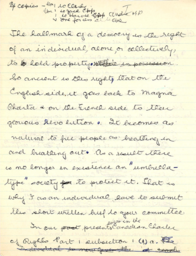 The hallmark of a democracy is the right
of an individual, alone or collectively,
to hold property
So ancient is this right that on the
English side it goes back to Magna
Charta - on the French side to their
glorious Revolution. It becomes as
natural to free people as breathing in
and breathing out. As a result there
is no longer in existence an "umbrella-
type" society to protect it. That is
why I as an individual have to submit
this short written brief to your committee
In our present Canadian Charter
of Rights Part 1 subsection 1(a) the